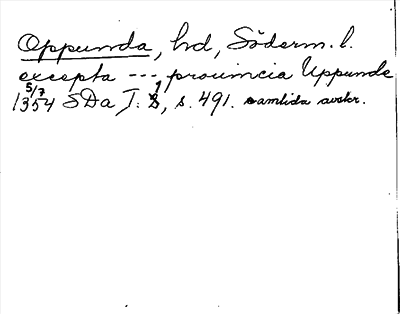 Oppunda, hd, Söderm. l.
excepta --- prouincia Uppunde
5/7
1354 SDa I: 1, s. 491. samtida avskr.